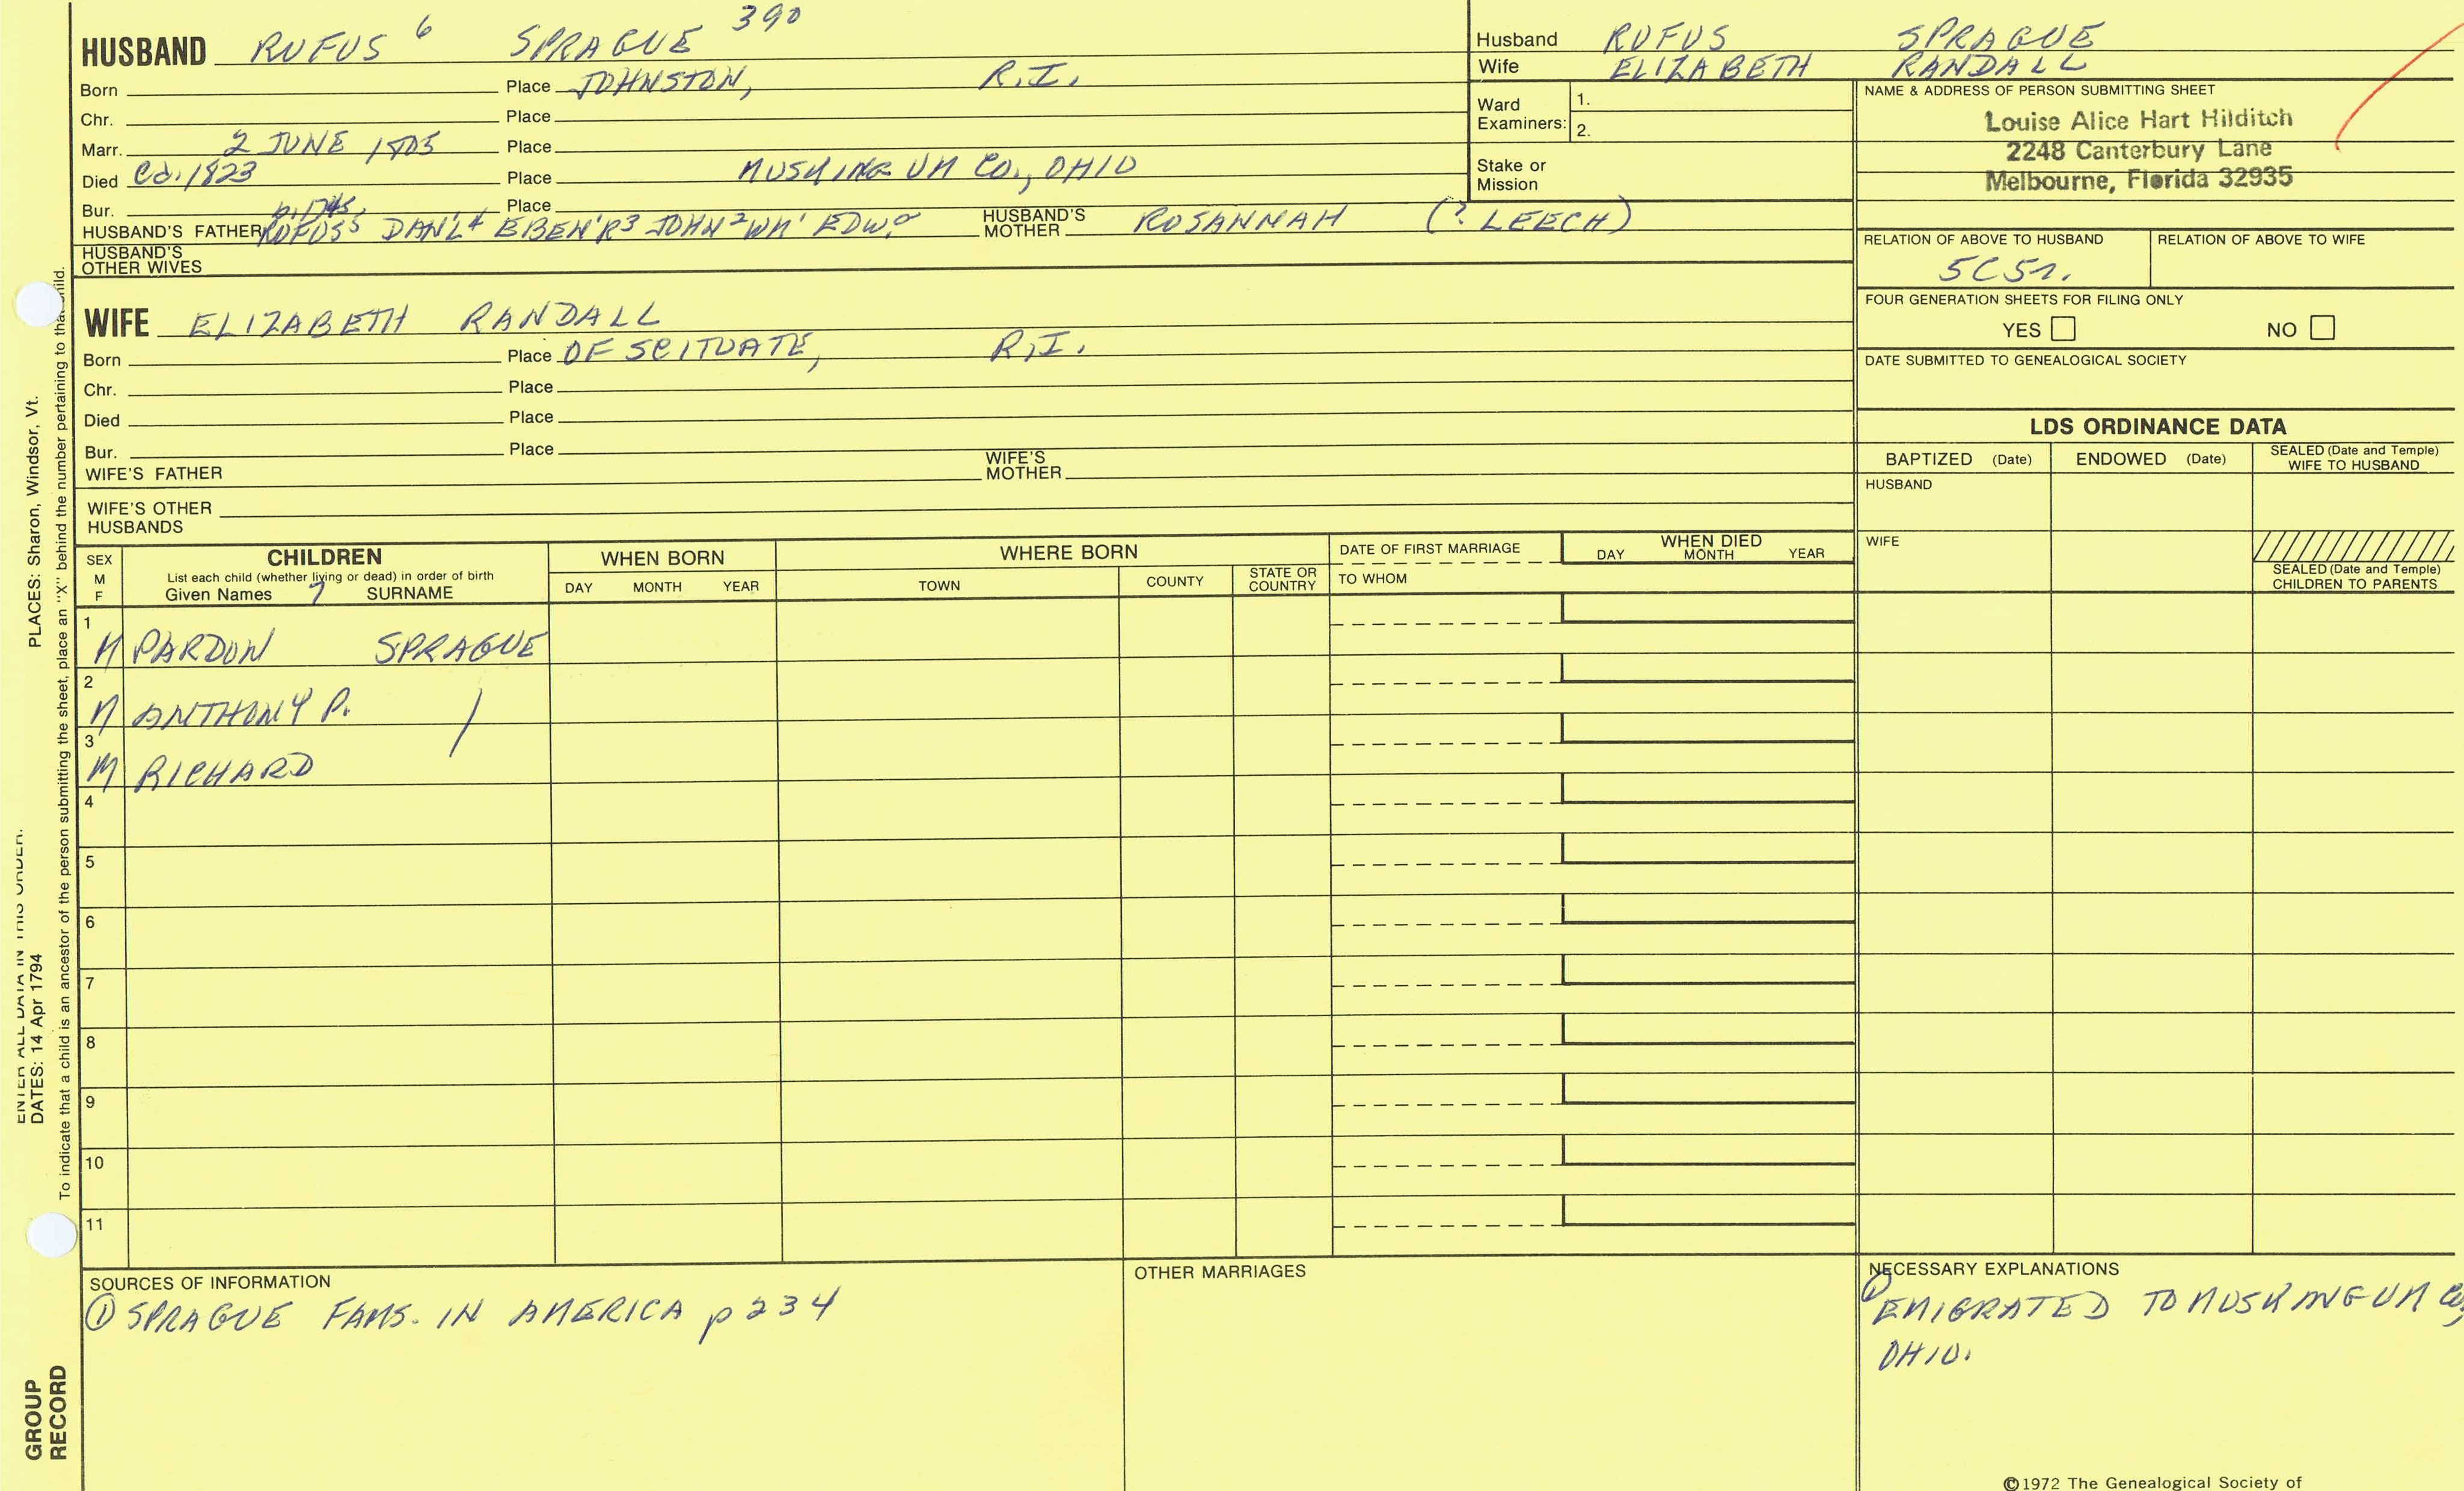 HUSBAND RUFUS 6 SPRAGUE 390
Born Place JOHNSTON, R.I.
Chr. Place
Marr. 2 JUNE 1805 Place
Died Ca. 1823 Place MUSKINGUM CO., OHIO
Bur. Place
HUSBAND'S FATHER RUFUS5 DAN'L4 EBEN'R3 JOHN2 WM1 EDW.0 HUSBAND'S MOTHER ROSANNAH (? LEECH)
HUSBAND'S OTHER WIVES
WIFE ELIZABETH RANDALL
Born Place OF SCITUATE, R.I.
Chr. Place
Died Place
Bur. Place
WIFE'S FATHER WIFE'S MOTHER
WIFE'S OTHER HUSBANDS
Husband RUFUS SPRAGUE
Wife ELIZABETH RANDALL
Ward Examiners: 1.
2.
Stake or Mission
NAME & ADDRESS OF PERSON SUBMITTING SHEET
Louise Alice Hart Hilditch
2248 Canterbury Lane
Melbourne, Florida 32935
RELATION OF ABOVE TO HUSBAND RELATION OF ABOVE TO WIFE
5C5r.
FOUR GENERATION SHEETS FOR FILING ONLY
YES NO
DATE SUBMITTED TO GENEALOGICAL SOCIETY
LDS ORDINANCE DATA
BAPTIZED (Date) ENDOWED (Date) SEALED (Date and Temple) WIFE TO HUSBAND
HUSBAND
WIFE
SEALED (Date and Temple) CHILDREN TO PARENTS
SEX M F CHILDREN
List each child (whether living or dead) in order of birth
Given Names 7 SURNAME
WHEN BORN
DAY MONTH YEAR
WHERE BORN
TOWN COUNTY STATE OR COUNTRY
DATE OF FIRST MARRIAGE
TO WHOM
WHEN DIED
DAY MONTH YEAR
1
M PARDON SPRAGUE
2
M ANTHONY P.
3
M RICHARD
4
5
6
7
8
9
10
11
SOURCES OF INFORMATION
① SPRAGUE FAMS. IN AMERICA p 234
OTHER MARRIAGES
NECESSARY EXPLANATIONS
① EMIGRATED TO MUSKINGUM Co,
OHIO.
©1972 The Genealogical Society of
ENTER ALL DATA IN THIS ORDER.
DATES: 14 Apr 1794 PLACES: Sharon, Windsor, Vt.
To indicate that a child is an ancestor of the person submitting the sheet, place an "X" behind the number pertaining to that child.
GROUP
RECORD